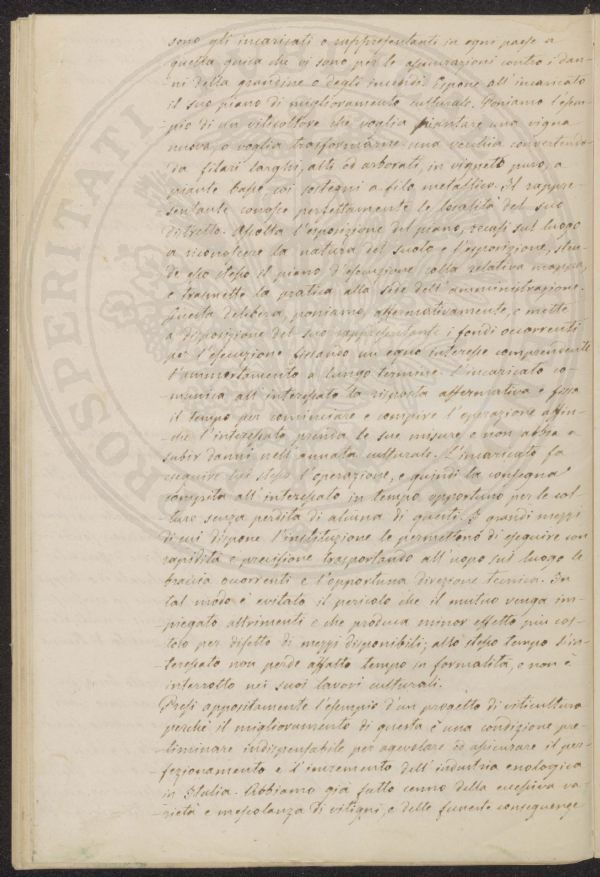 sono gli incaricati o rappresentanti in ogni paese a
quella guisa che vi sono per le assicurazioni contro i dan-
ni della grandine o degli incendi. Espone all'incaricato
il suo piano di miglioramento culturale. Poniamo l'esem-
pio di un viticoltore che voglia piantare una vigna
nuova, o voglia trasformarne una vecchia convertendo-
da filari larghi, alti ed arborati, in vigneto puro, a
piante basse coi sostegni a filo metallico. Il rappre-
sentante conosce perfettamente le località del suo
distretto. Ascolta l'esposizione del piano, recasi sul luogo
a riconoscere la natura del suolo e l'esposizione, sten-
de esso stesso il piano d'esecuzione colla relativa mappa,
e trasmette la pratica alla sede dell'amministrazione.
Questa delibera, poniamo, affermativamente, e mette
a disposizione del suo rappresentante i fondi occorrenti
per l'esecuzione fissando un equo interesse comprendente
l'ammortamento a lungo termine. L'incaricato co-
munica all'interessato la risposta affermativa e fissa
il tempo per cominciare e compire l'operazione affin-
chè l'interessato prenda le sue misure e non abbia a
subir danni nell'annata culturale. L'incaricato fa
eseguire stesso l'operazione, e quindi la consegna
compita all'interessato in tempo opportuno per le col-
ture senza perdita di alcuna di questi. I grandi mezzi
di cui dispone l'instituzione le permettono di eseguire con
rapidità e precisione trasportando all'uopo sul luogo le
braccia occorrenti e l'opportuna direzione tecnica. In
tal modo è evitato il pericolo che il mutuo venga im-
piegato altrimenti e che produca minor effetto più cos-
toso per difetto di mezzi disponibili; allo stesso tempo l'in-
teressato non perde affatto tempo in formalità, e non è
interrotto nei suoi lavori culturali.
Presi appositamente l'esempio d'un progetto di viticultura
perchè il miglioramento di questa è una condizione pre-
liminare indispensabile per agevolare ed assicurare il per-
fezionamento e l'incremento dell'industria enologica
in Italia. Abbiamo già fatto cenno della eccessiva va-
rietà e mescolanza di vitigni, e delle funeste conseguenze
PROSPERITATI